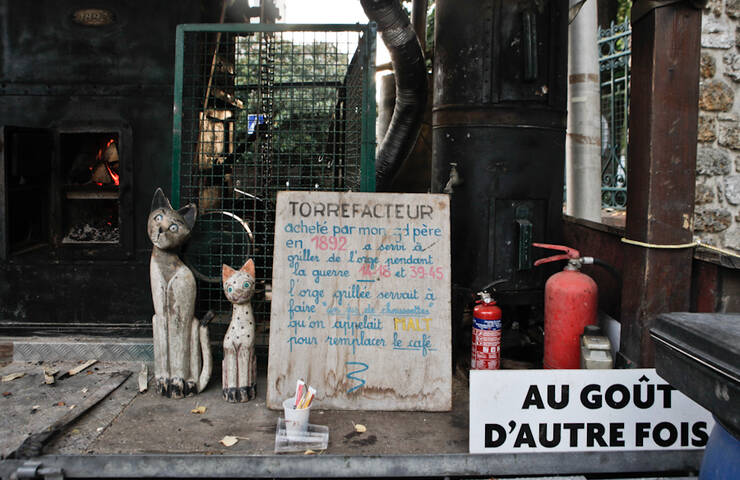 1892
TORREFACTEUR
acheté par mon gd père
en 1892 a servi à
griller de l'orge pendant
la guerre 14-18 et 39-45
l'orge grillée servait à
faire "les jus de chaussettes"
qu'on appelait MALT
pour remplacer le café
AU GOÛT
D'AUTRE FOIS